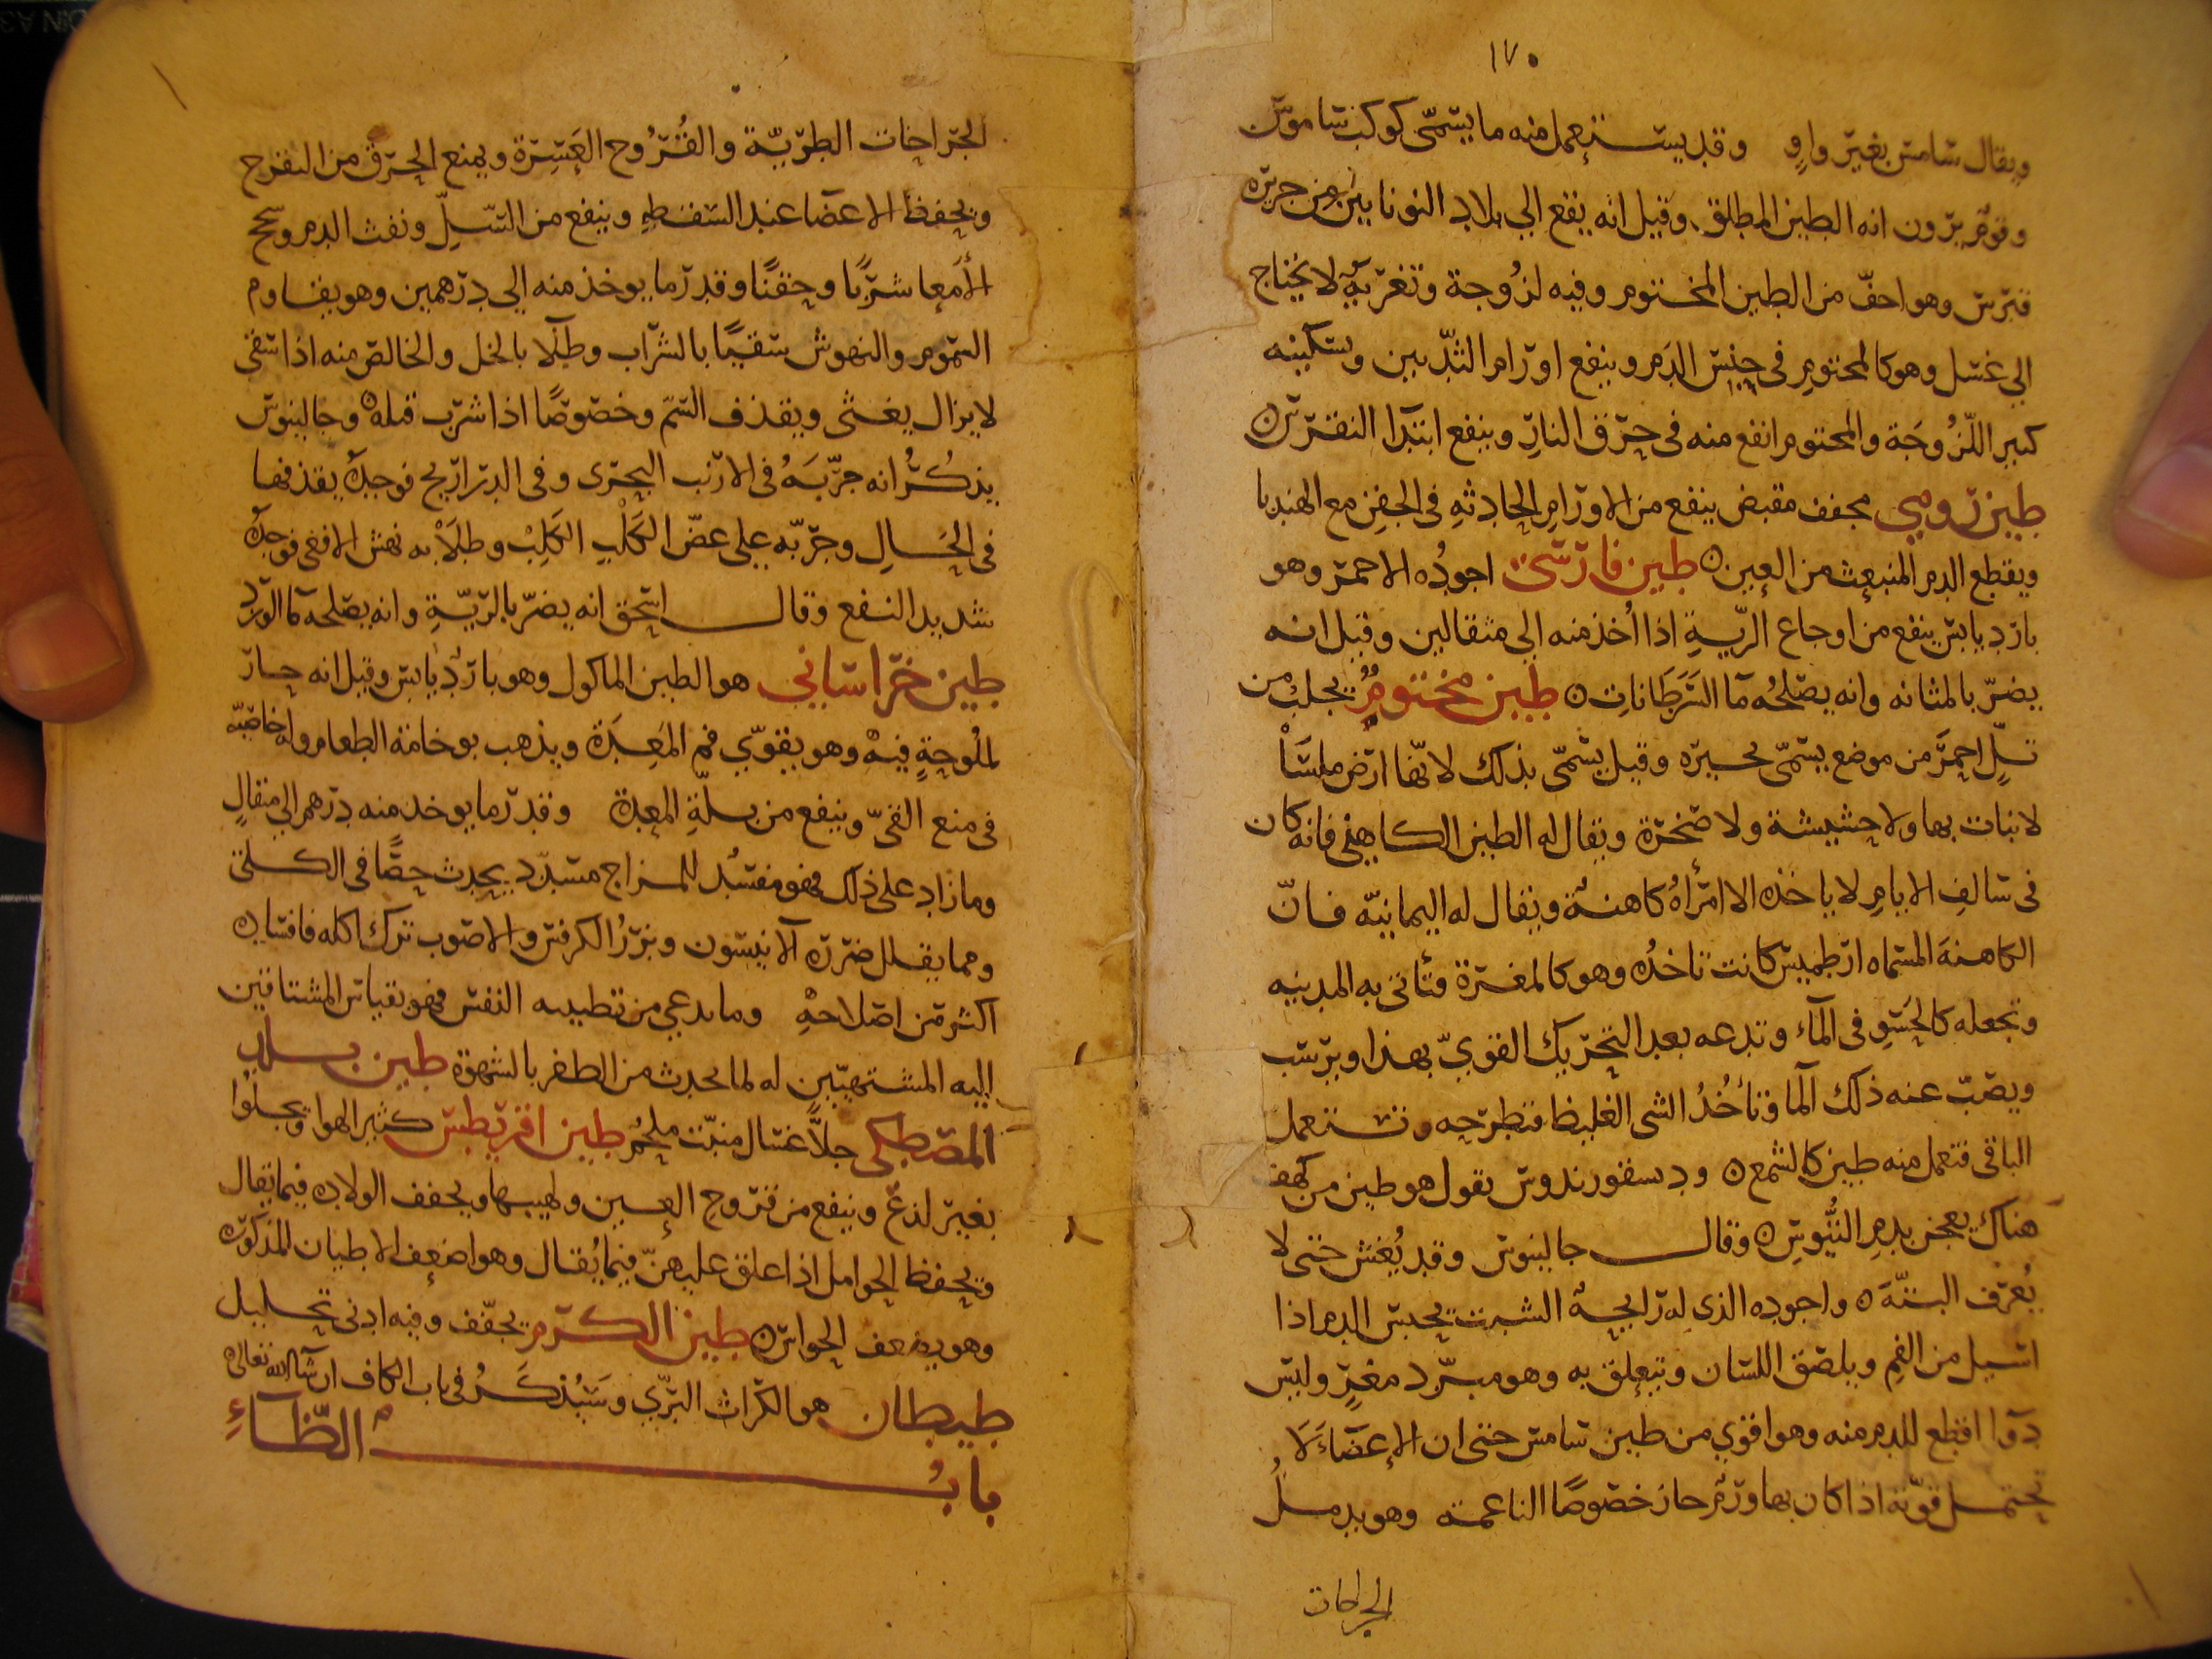 ١٧٠
ويقال شامس بغير واوٍ وقد يستعمل منه ما يسمّى كوكب شاموس
وقوم يرون انه الطين المطلق وقيل انه يقع الي بلاد اليونانيين من جزيره
قبرس وهو اخفّ من الطين المختوم وفيه لزُوجة وتغريةٌ لا يحتاج
الي غسل وهو كالمختوم في حبس الدم وينفع اورام الثدّيين وتسكينه
كبير اللّزُوجَة والمختوم انفع منه في حرق النارِ وينفع ابتدآ النقرس
طين رومي مجفف مقبض ينفع من الاورامِ الحادثهِ في الجفنِ مع الهندبا
ويقطع الدم المنبعث من العين طين فارسي اجودُه الاحمر وهو
بارد يابس ينفع من اوجاع الريّةِ اذا اُخذ منه الي مثقالين وقيل انه
يضرّ بالمثانه وانه يصلحُه مآ السَرَطاناتِ طين مختومٌ يجلبُ من
تلٍّ احمرَ من موضع يسمّى بحيره وقيل يسمّى بذلك لانّها ارض ملسَآ
لا نبات بها ولا حشيشة ولا صخرة ويقال له الطين الكاهنى فانه كان
في سالفِ الايامِ لا ياخذه الا امرأةُ كاهنةٌ ويقال له اليمانيّه فانّ
الكاهنة المسماه ارطميس كانت تاخذُه وهو كالمغرة وتأتى به المدينه
وتجعله كالحَسَوِ في المآء وتدعه بعد التحريك القويّ يهذا ويرسب
ويصبّ عنه ذلك المآ وتأخُذُ الشى الغليظ فتطرحه وتستعمل
الباقى فتعمل منه طين كالشمع وديسقوريدوس يقول هو طين من كهف
هناك يعجن بدمِ التُّيُوسِ وقال جالينوس وقد يُغش حتى لا
يُعرف البتّةَ واجوده الذى له رايحةُ الشبت يحبس الدم اذا
اسيل من الفمِ ويلصق اللسان ويتعلق به وهو مبرّد مغرٍّ وليس
دوآ اقطع للدم منه وهو اقوي من طين شامس حتى ان الاعضآءَ لَا
تحتمل قوّته اذا كان بها ورمٌ حار خصوصًا الناعمة وهو يدملُ
الجراحات
الجراحات الطريّة والقُرُوح العَسِرَة ويمنع الحرق من التقرح
ويحفظ الاعضا عند السقطهِ وينفع من السّلِّ ونفث الدم وسحج
الأمعا شربًا وحقنًا وقدر ما يوخذ منه إلي درهمين وهو يقاوم
السموم والنهوش سقيًا بالشراب وطلآ بالخل والخالص منه اذا سقى
لا يزال يغثى ويقذف السّم وخصوصًا اذا شرب قبله وجالينوس
يذكُرُ انه جرّبَهُ في الارنب البحرى وفي الدراريح فوجده يقذفها
في الحَالِ وجرّبه على عضّ الكَلْبِ الكَلِبْ وطلَآ به نهش الافعى فوجدهُ
شديد النفع وقال اسحق انه يضرّ بالريّةِ وانه يصلحه مآ الورد
طين خراساني هو الطين الماكول وهو باردٌ يابس وقيل انه حار
لملُوحةٍ فيهْ وهو يقوّي فم المَعِدَة ويذهب بوخامة الطعام وله خاصّيه
في منع القىّ وينفع من بلّةِ المعدة وقدر ما يوخذ منه درهم الي مثقالٍ
وما زاد على ذلك فهو مفسُد للمزاج مسدّد يحدث حصًا في الكلى
ومما يقلل ضرره الآنيسون وبزرُ الكرفس والاصوب ترك اكله فافساده
اكثر من اصلاحهْ وما يدعي من تطييبه النفس فهو بقياس المشتاقين
اليه المشتهيّين له لما يحدث من الظفر بالشهوة طين بلد
المصطكى جلآ غسال منبّت ملحُم طين اقريطش كثير الهوا ويجلُوا
بغير لذعّ وينفع من قروح العين ولهيبها ويخفف الولاده فيما يقال
ويحفظ الحوامل اذا علق عليهنّ فيما يُقال وهو اضعف الاطيان المذكوره
وهو يضعف الحواس طين الكرم يجفّف وفيه ادنى تحليل
طيطان هو الكراث البرّي وسَيُذكَرُ في باب الكاف ان شآ الله تعالى
بابُ الظّآءِ